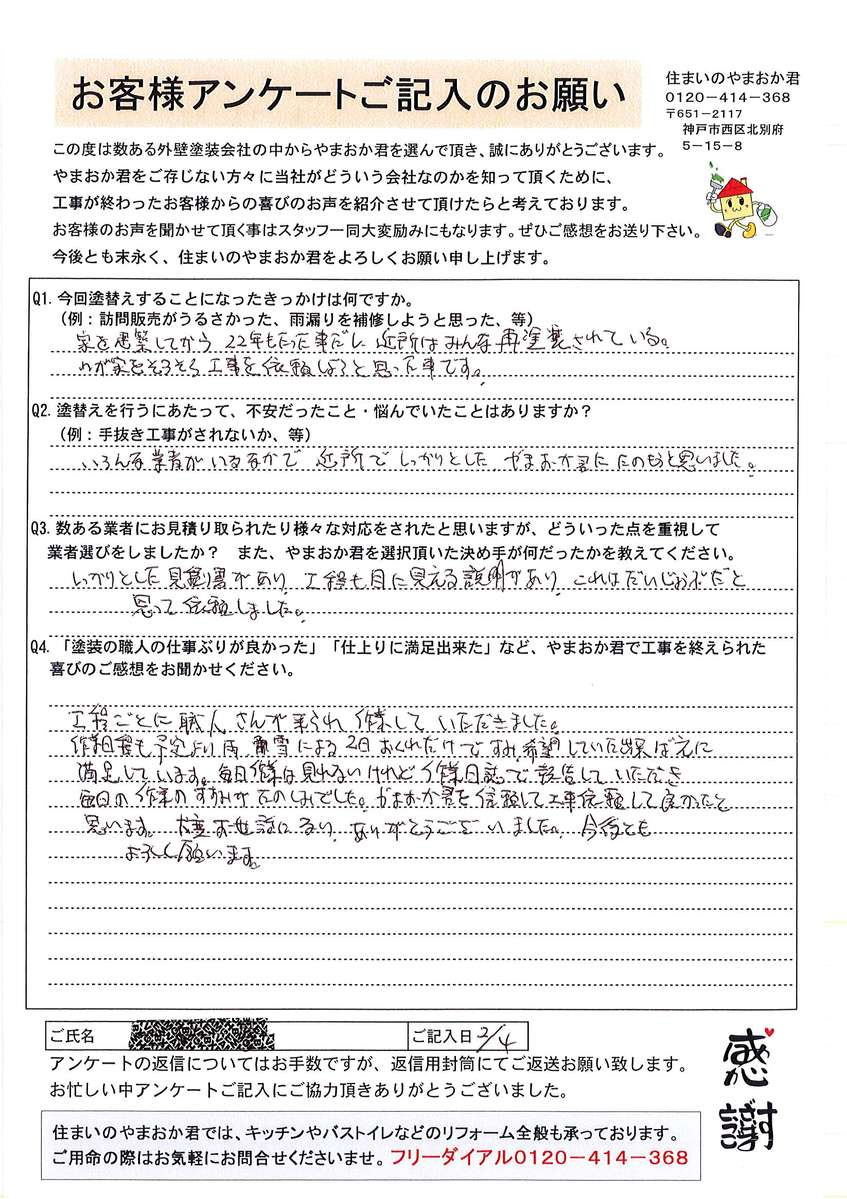 お客様アンケートご記入のお願い
住まいのやまおか君
0120-414-368
〒651-2117
神戸市西区北別府
5-15-8
この度は数ある外壁塗装会社の中からやまおか君を選んで頂き、誠にありがとうございます。
やまおか君をご存じない方々に当社がどういう会社なのかを知って頂くために、
工事が終わったお客様からの喜びのお声を紹介させて頂けたらと考えております。
お客様のお声を聞かせて頂く事はスタッフ一同大変励みにもなります。ぜひご感想をお送り下さい。
今後とも末永く、住まいのやまおか君をよろしくお願い申し上げます。
Q1. 今回塗替えすることになったきっかけは何ですか。
（例：訪問販売がうるさかった、雨漏りを補修しようと思った、等）
家を建築してから 22年もたった事だし 近所はみんな再塗装されている。
わが家もそろそろ工事を依頼しようと思った事です。
Q2. 塗替えを行うにあたって、不安だったこと・悩んでいたことはありますか？
（例：手抜き工事がされないか、等）
いろんな業者がいるなかで 近所で しっかりとした やまおか君に たのもうと思いました。
Q3. 数ある業者にお見積り取られたり様々な対応をされたと思いますが、どういった点を重視して
業者選びをしましたか？ また、やまおか君を選択頂いた決め手が何だったかを教えてください。
しっかりとした見積り書があり 工程も目に見える説明があり これはだいじょうぶだと
思って依頼しました。
Q4. 「塗装の職人の仕事ぶりが良かった」「仕上りに満足出来た」など、やまおか君で工事を終えられた
喜びのご感想をお聞かせください。
工程ごとに職人さんが来られ 作業して いただきました。
作業日程も予定より雨 雪による2日おくれだけですみ、希望していた出来ばえに
満足しています。毎日作業は見れないけれど 作業日誌で報告していただき
毎日の作業のすすみがたのしみでした。やまおか君を信頼して工事依頼して良かったと
思います。大変お世話になり、ありがとうございました。今後とも
よろしく願います。
ご氏名
ご記入日 2/4
アンケートの返信についてはお手数ですが、返信用封筒にてご返送お願い致します。
お忙しい中アンケートご記入にご協力頂きありがとうございました。
感謝
住まいのやまおか君では、キッチンやバストイレなどのリフォーム全般も承っております。
ご用命の際はお気軽にお問合せくださいませ。フリーダイアル0120-414-368